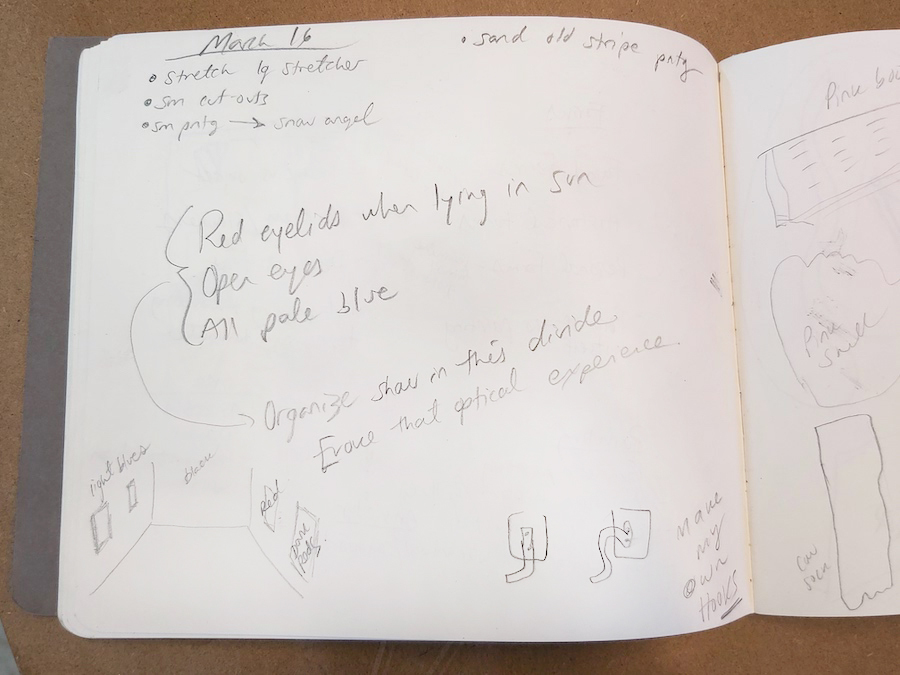 March 16
• stretch lg stretcher
• sm cut-outs
• sm pntg → snow angel
• sand old stripe pntg
Red eyelids when lying in sun
Open eyes
All pale blue
Organize show in this divide
Evoke that optical experience.
light blues
blank
Red
Dark Reds
Make
my
own
Hooks
Pink
Pink
Small